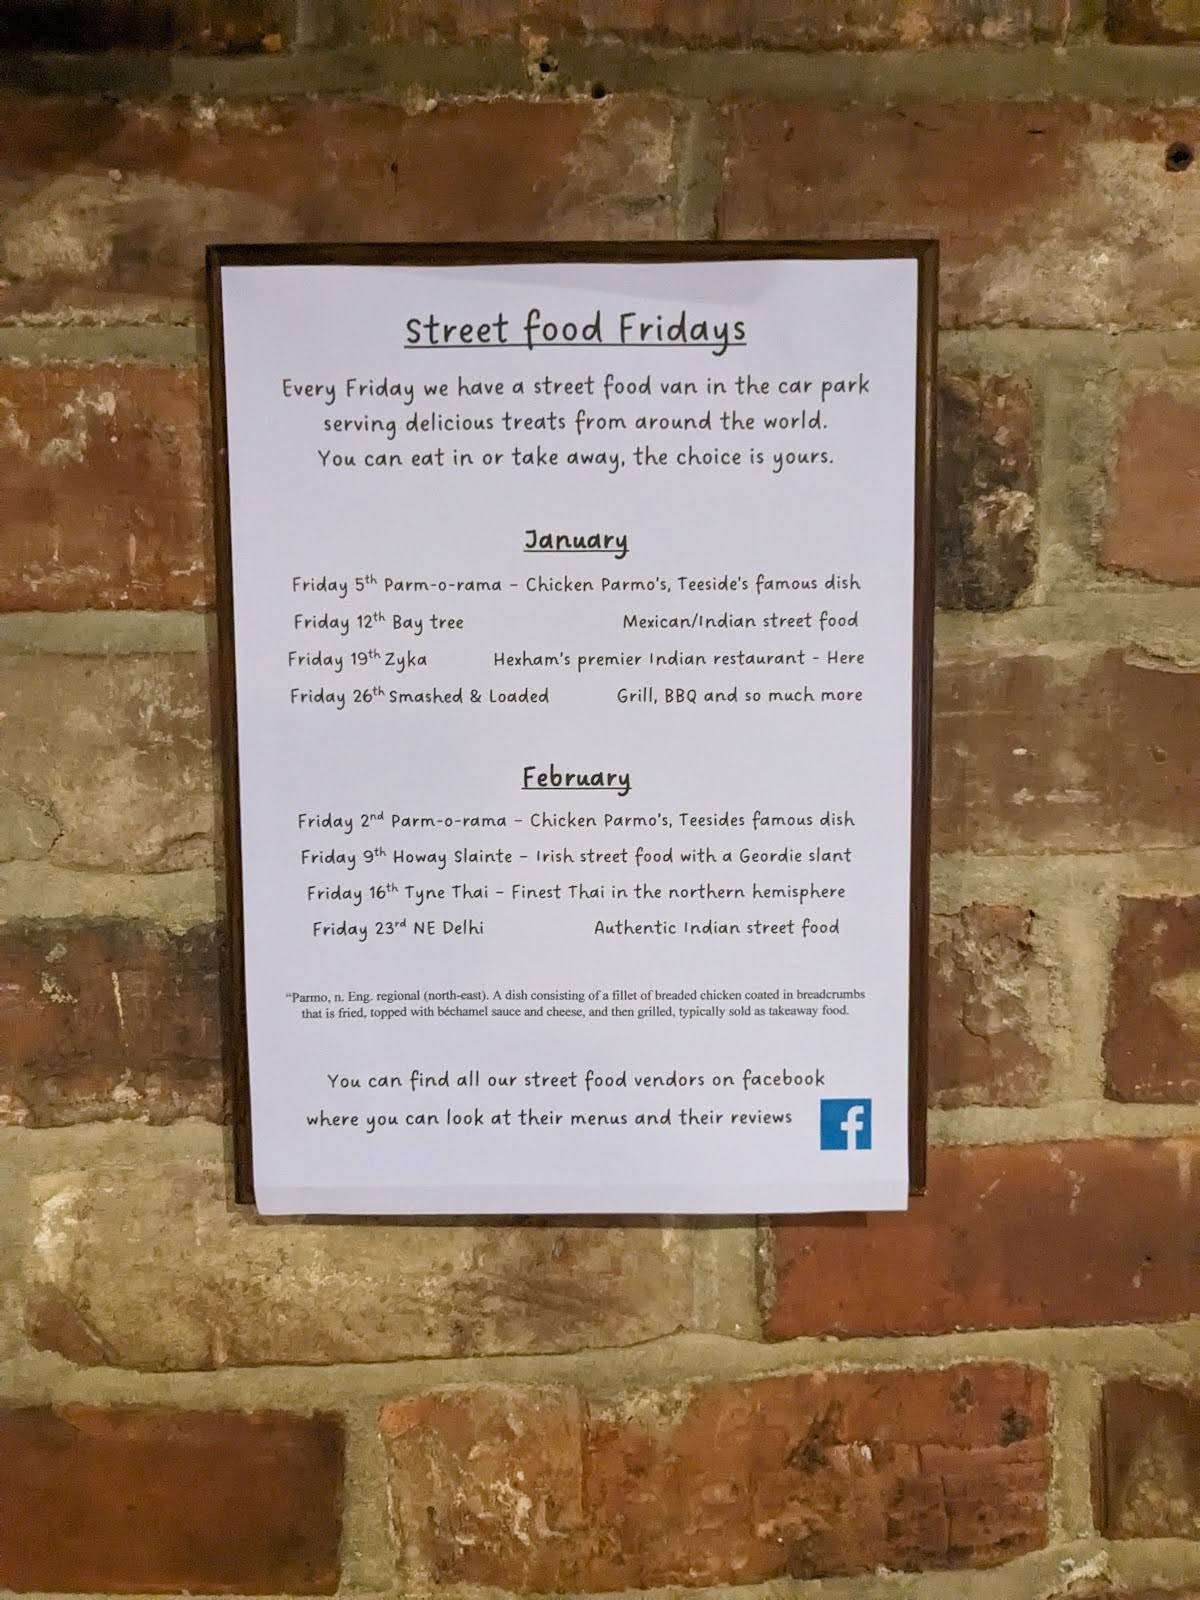 Street food Fridays
Every Friday we have a street food van in the car park
serving delicious treats from around the world.
You can eat in or take away, the choice is yours.
January
Friday 5th Parm-o-rama – Chicken Parmo's, Teeside's famous dish
Friday 12th Bay tree Mexican/Indian street food
Friday 19th Zyka Hexham's premier Indian restaurant - Here
Friday 26th Smashed & Loaded Grill, BBQ and so much more
February
Friday 2nd Parm-o-rama – Chicken Parmo's, Teesides famous dish
Friday 9th Howay Slainte – Irish street food with a Geordie slant
Friday 16th Tyne Thai – Finest Thai in the northern hemisphere
Friday 23rd NE Delhi Authentic Indian street food
“Parmo, n. Eng. regional (north-east). A dish consisting of a fillet of breaded chicken coated in breadcrumbs
that is fried, topped with béchamel sauce and cheese, and then grilled, typically sold as takeaway food.
You can find all our street food vendors on facebook
where you can look at their menus and their reviews
f